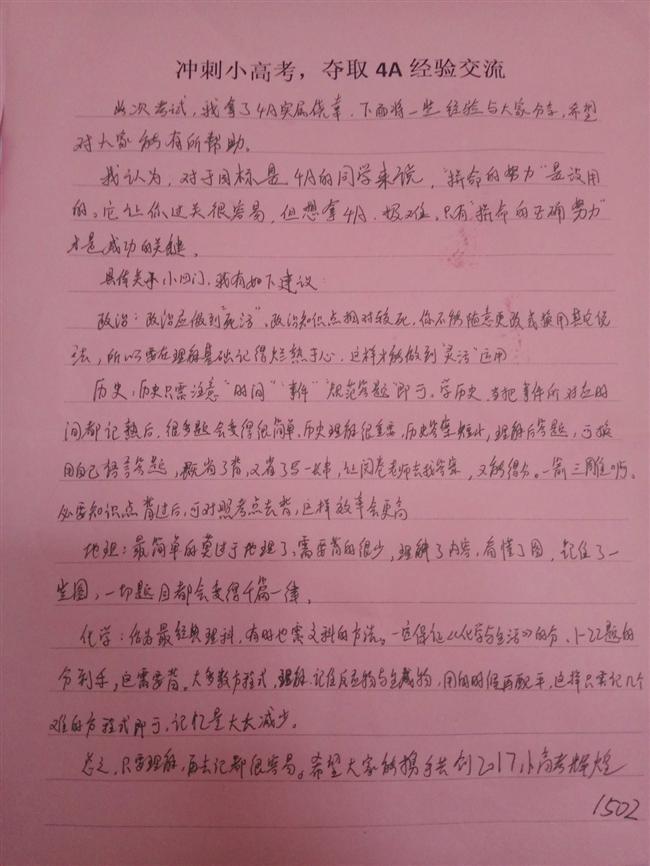 冲刺小高考，夺取 4A 经验交流
此次考试，我拿了4A实属侥幸，下面将一些经验与大家分享，希望
对大家能有所帮助。
我认为，对于目标是4A的同学来说，“拼命的努力”是没用
的。它让你过关很容易，但想拿4A，极难。只有“拼命的正确努力”
才是成功的关键。
具体关于小四门，我有如下建议：
政治：政治应做到“死活”，政治知识点相对较死，你不能随意更改或换用其它说
法，所以要在理解基础记得烂熟于心，这样才能做到“灵活”运用
历史：历史只需注意“时间”“事件”“规范答题”即可，学历史，当把事件所对应时
间都记熟后，很多题会变得很简单，历史理解很重要，历史答案，理解后答题，可换
用自己语言答题，既省了背，又省了写一大串，让阅卷老师去找答案，又能得分。一箭三雕。
必要知识点背过后，可对照考点去背，这样效率会更高
地理：最简单的莫过于地理了，需要背的很少，理解了内容，看懂了图，记住了一
些图，一切题目都会变得千篇一律。
化学：作为最经典理科，有时也需文科的方法。一定保证《化学与生活》的分，1-22题的
分到手，这需要背。大多数方程式，理解、记住反应物与生成物，用的时候再配平，这样只需记几个
难的方程式即可，记忆量大大减少。
总之，只要理解，再去记都很容易。希望大家能携手共创2017小高考辉煌
1502